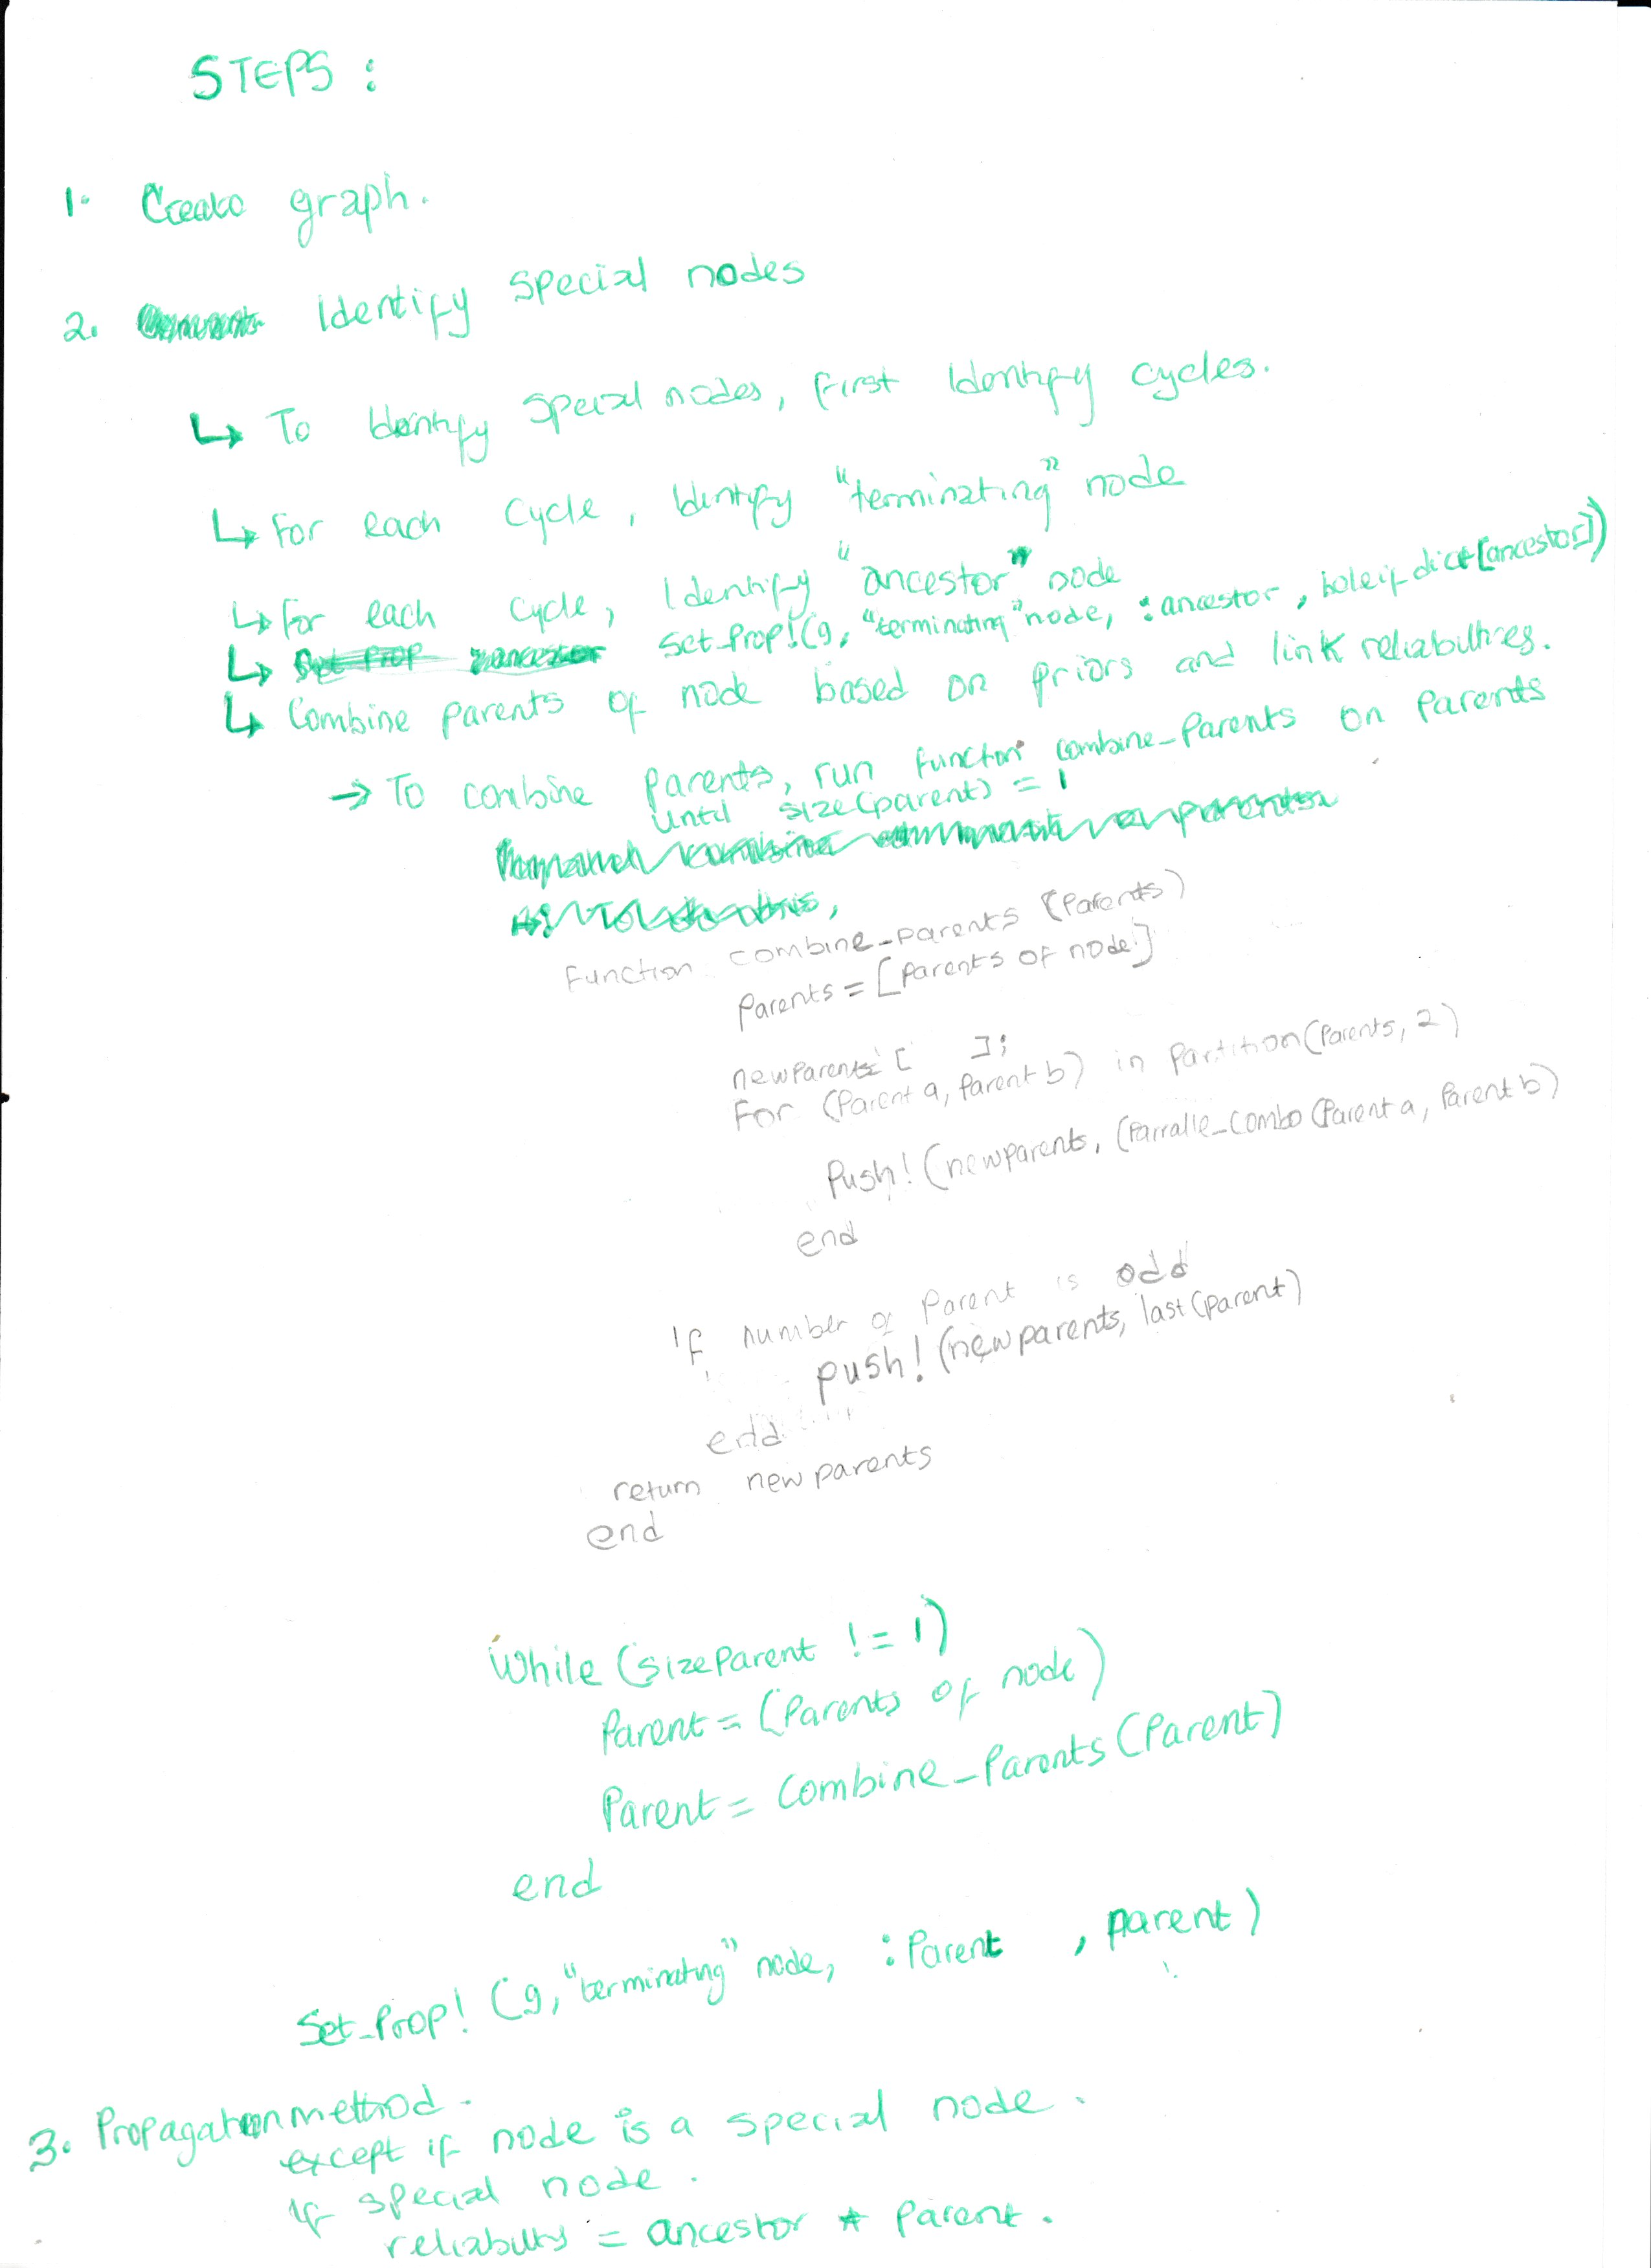 STEPS :
1. Create graph.
2. Identify special nodes
↳ To Identify special nodes, first Identify cycles.
↳ For each cycle, Identify "terminating" node
↳ for each cycle, Identify "ancestor" node
↳ set_prop!(g, "terminating" node, :ancestor, beleif dict[ancestor])
↳ Combine parents of node based on priors and link reliabilities.
→ To combine parents, run function combine_parents on parents
until size(parent) = 1
Function combine_parents (Parents)
Parents = [parents of node]
newParents = [ ];
For (Parent a, parent b) in Partition(Parents, 2)
Push! (newparents, (Parralle_combo (Parent a, Parent b)
end
If number of Parent is odd
push! (newparents, last(parent)
end
return newparents
end
While (sizeParent != 1)
Parent = (Parents of node)
Parent = Combine_Parents (Parent)
end
Set_Prop! (g, "terminating" node, :Parent , parent)
3. Propagation method.
except if node is a special node.
If special node.
reliability = ancestor * Parent.